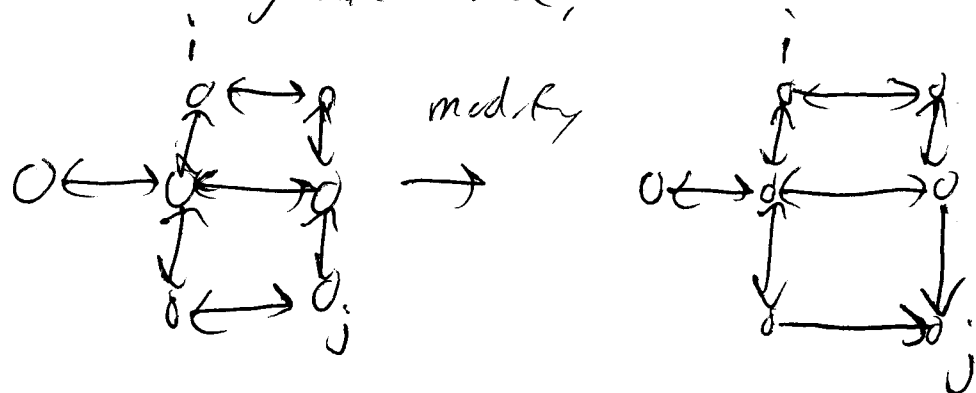 i i
modify
j
j